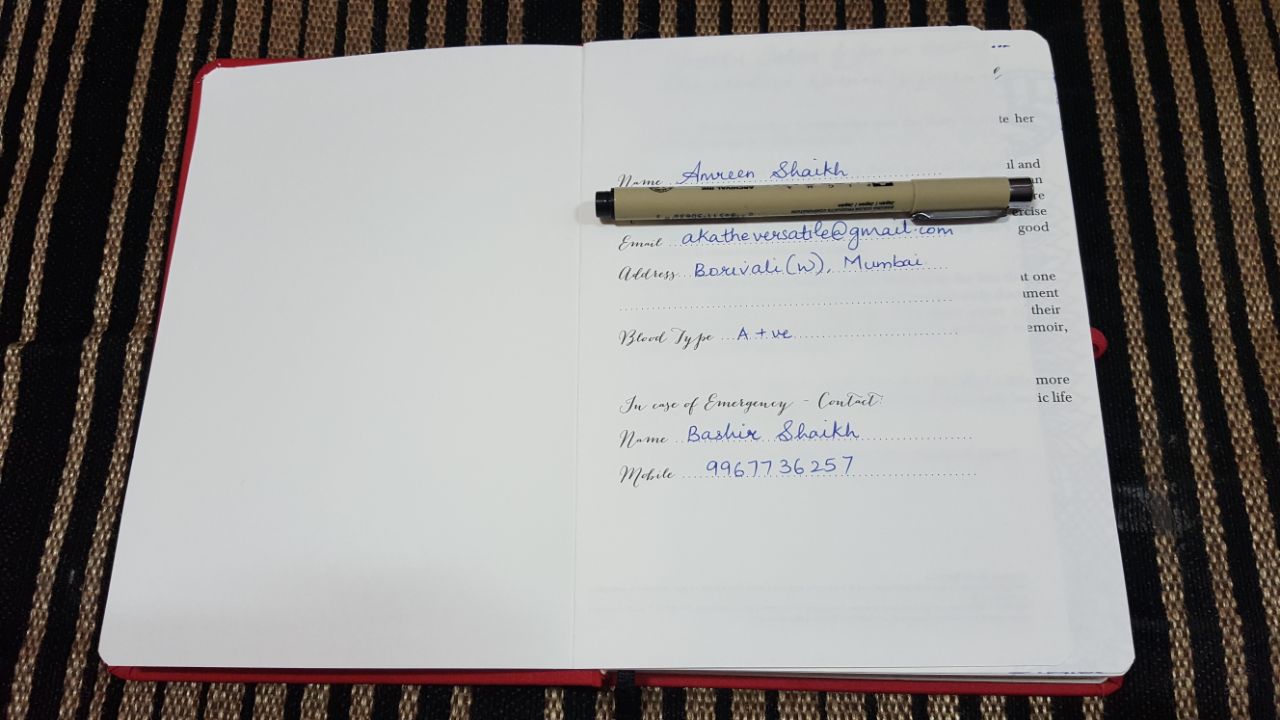 te her
Name Amreen Shaikh
ul and
ARCHIVAL INK
ercise
Email akatheversatile@gmail.com
good
Address Borivali (W), Mumbai
at one
ument
their
Blood Type A +ve
emoir,
more
In case of Emergency - Contact:
ic life
Name Bashir Shaikh
Mobile 9967736257